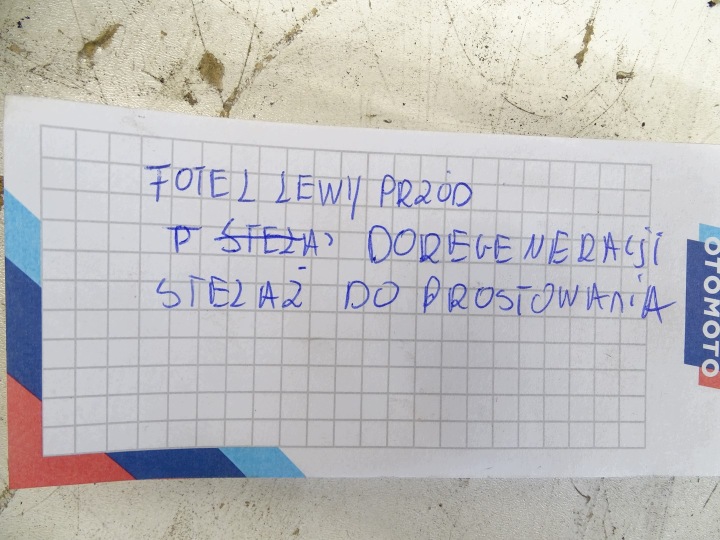 FOTEL LEWY PRZÓD
P STELAŻ DO REGENERACJI
STELAŻ DO PROSTOWANIA
OTOMOTO